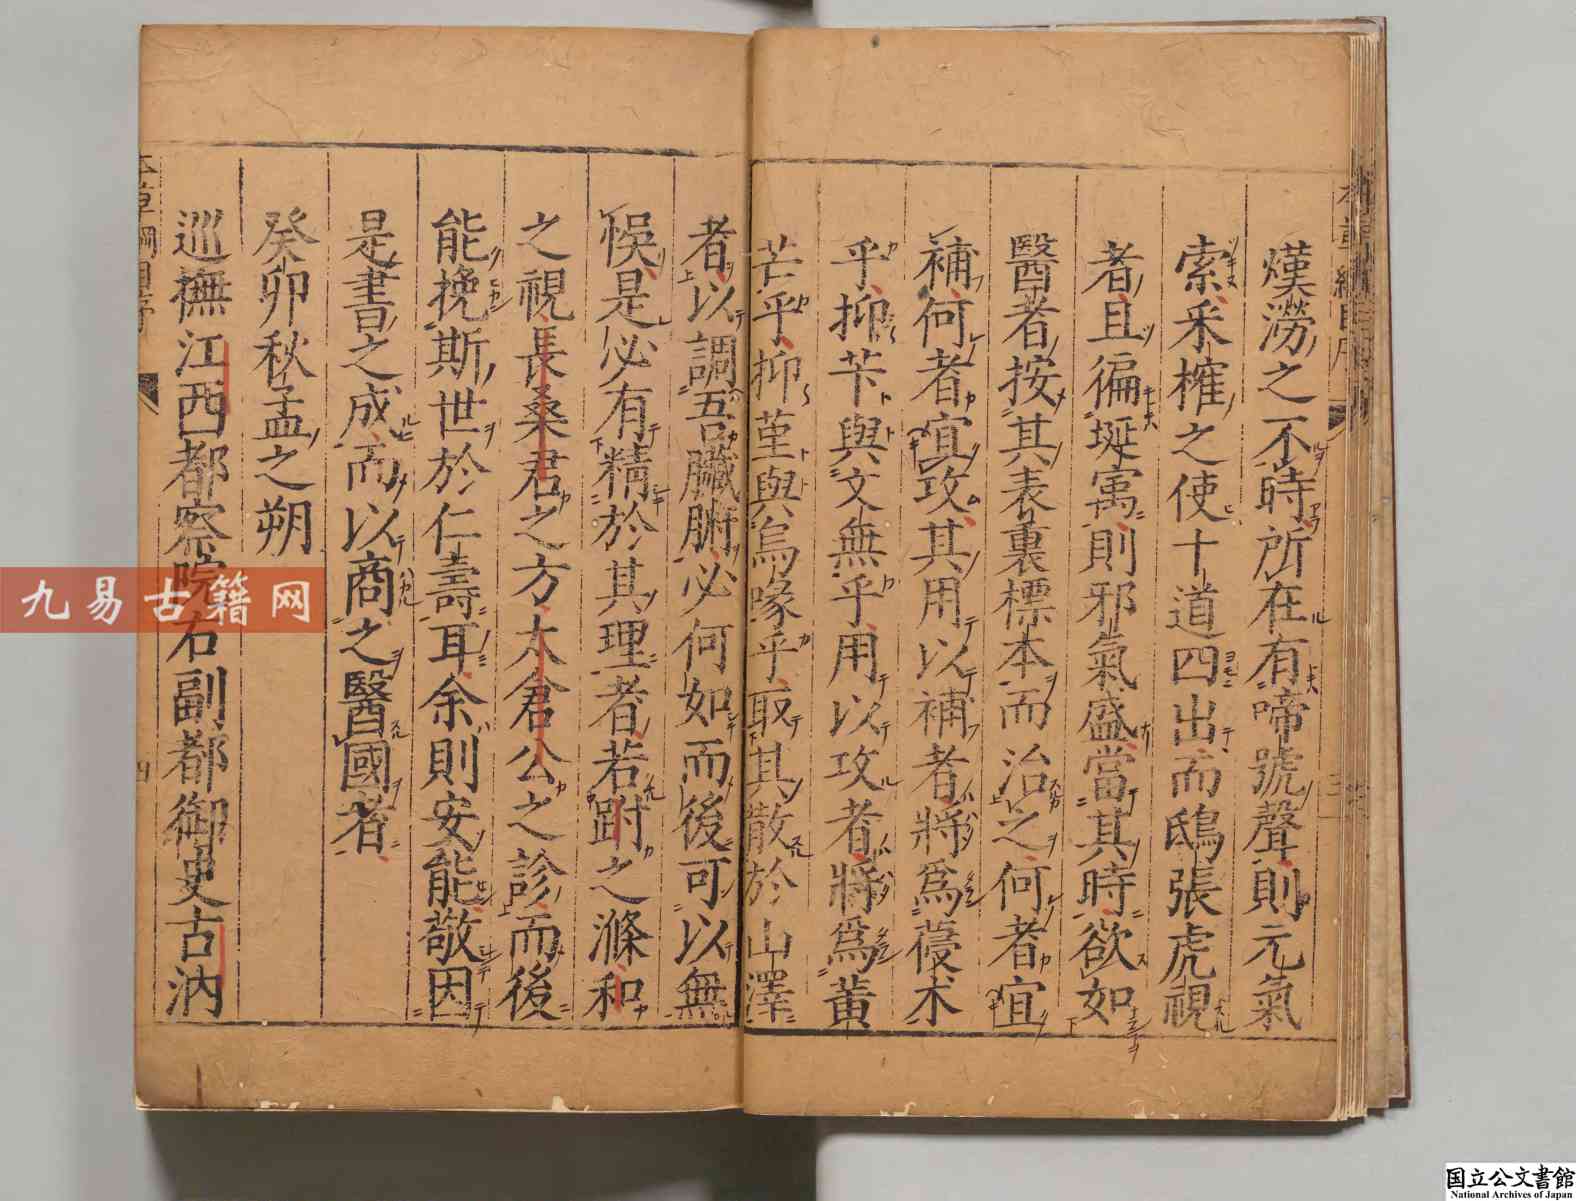 熯澇之不時所在有啼號聲則元氣
索采榷之使十道四出而鴟張虎視
者且徧埏寓則邪氣盛當其時欲如
醫者按其表裏標本而治之何者宜
補何者宜攻其用以補者將爲薓术
乎抑芐與文無乎用以攻者將爲黃
芒乎抑堇與烏喙乎取其散於山澤
者以調吾臟腑必何如而後可以無
悞是必有精於其理者若跗之滌和
之視長桑君之方太倉公之診而後
能挽斯世於仁壽耳余則安能敬因
是書之成而以商之醫國者
癸卯秋孟之朔
巡撫江西都察院右副都御史古汭
本草綱目序
四
九易古籍网
国立公文書館
National Archives of Japan